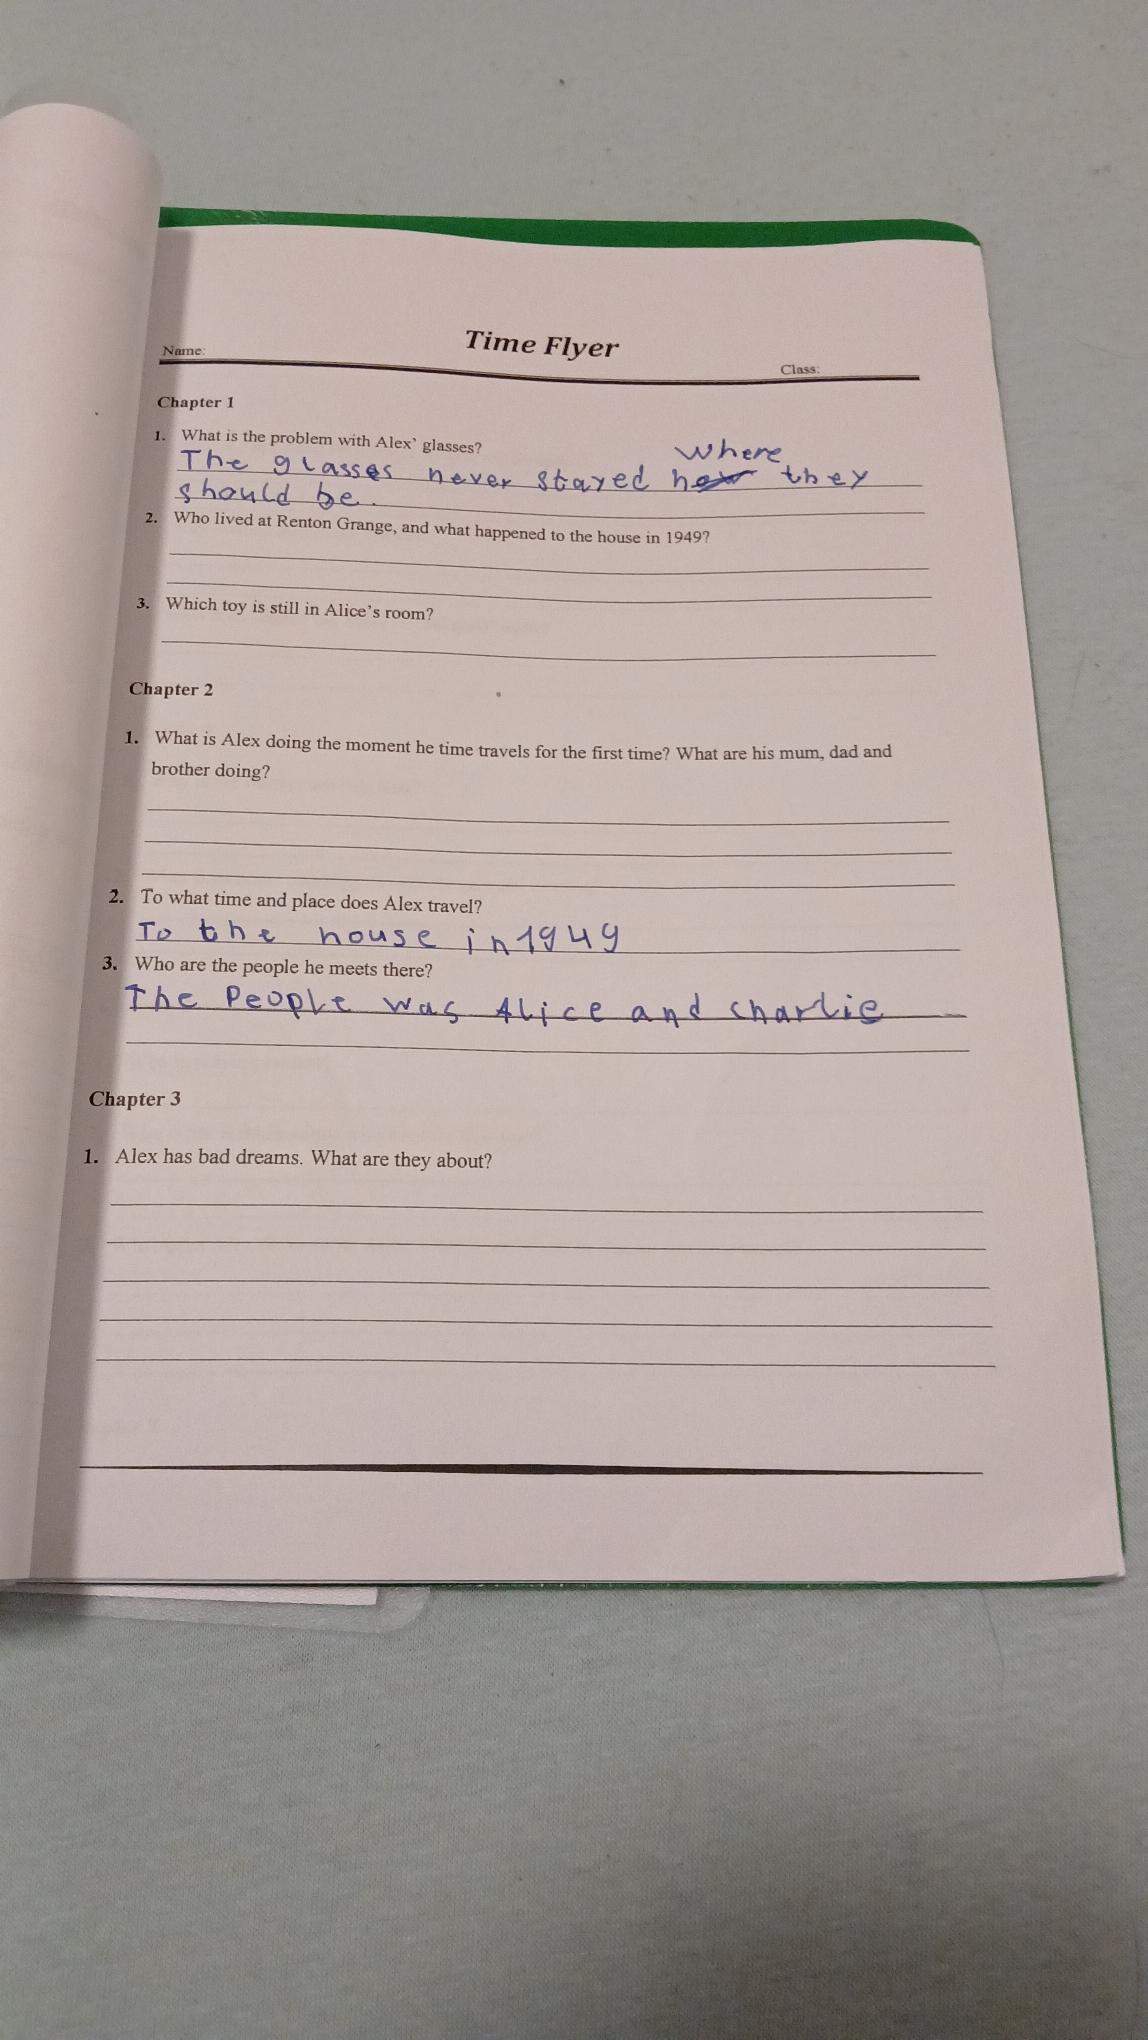 Time Flyer
Name:
Class:
Chapter 1
1. What is the problem with Alex' glasses?
where
The glasses never stayed how they
should be.
2. Who lived at Renton Grange, and what happened to the house in 1949?
3. Which toy is still in Alice's room?
Chapter 2
1. What is Alex doing the moment he time travels for the first time? What are his mum, dad and
brother doing?
2. To what time and place does Alex travel?
To the house in 1949
3. Who are the people he meets there?
The People was Alice and charlie
Chapter 3
1. Alex has bad dreams. What are they about?